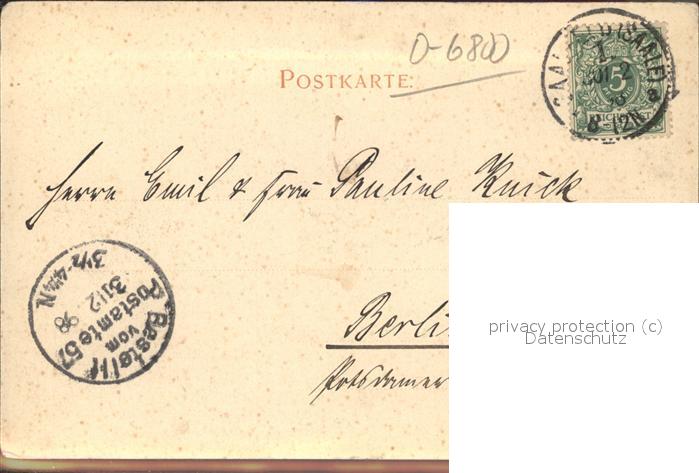 D-6800
POSTKARTE.
SAALFELD (SAALE)
5
8-12N
Herrn Emil & Frau Pauline Knick
Berli
Potsdamer
Bestellt
vom
Postamte 57
31/12
98
3½-4¼N
privacy protection (c)
Datenschutz